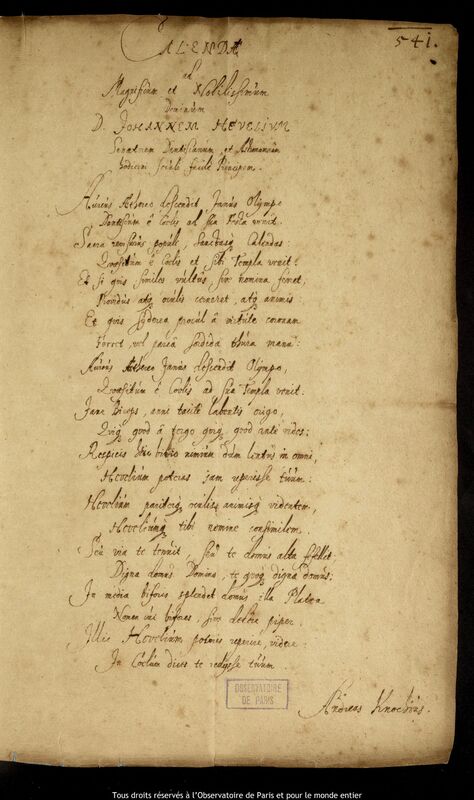 541.
CALENDÆ
ad
Magnificum et Nobilissimum
Dominum
D. JOHANNEM HEVELIUM
Senatorem Dantiscanum, et Astronomum
hodierni Seculi facile Principem.
Aureus Æthereo descendit Janus Olympo
Dantiscum è Coelis ad sua Festa venit.
Sacra populi, Sanctasq Calendas
Quaesitum è Coelis et sibi Templa venit.
Et si quis similes vultus, sive nomina ferret,
Providus atq oculis cerneret, atq animis:
Et quis Syderea procul à virtute coronam
Ferret, vel pura sordida thura manu:
Aureus Æthereo Janus descendit Olympo,
Quaesitum è Coelis ad sua Templa venit.
Jane Biceps, anni tacitè labentis origo,
Quiq quod à tergo quiq quod ante vides:
Respicis dum lentus in omne,
Hevelium poteras jam reperisse tuum:
Hevelium pariterq oculis animisq videntem,
Heveliumq tibi nomine consimilem.
Seu via te tenuit, seu te domus alta
Digna domus Domino, te quoq digna domus:
In media bifores splendet domus illa Platea
Nomen ubi bifores, sive dedere piper.
Illic Hevelium potuis reperire, videre
In Coelum dices te rediisse tuum.
Andreas Knochius.
OBSERVATOIRE
DE PARIS
Tous droits réservés à l'Observatoire de Paris et pour le monde entier